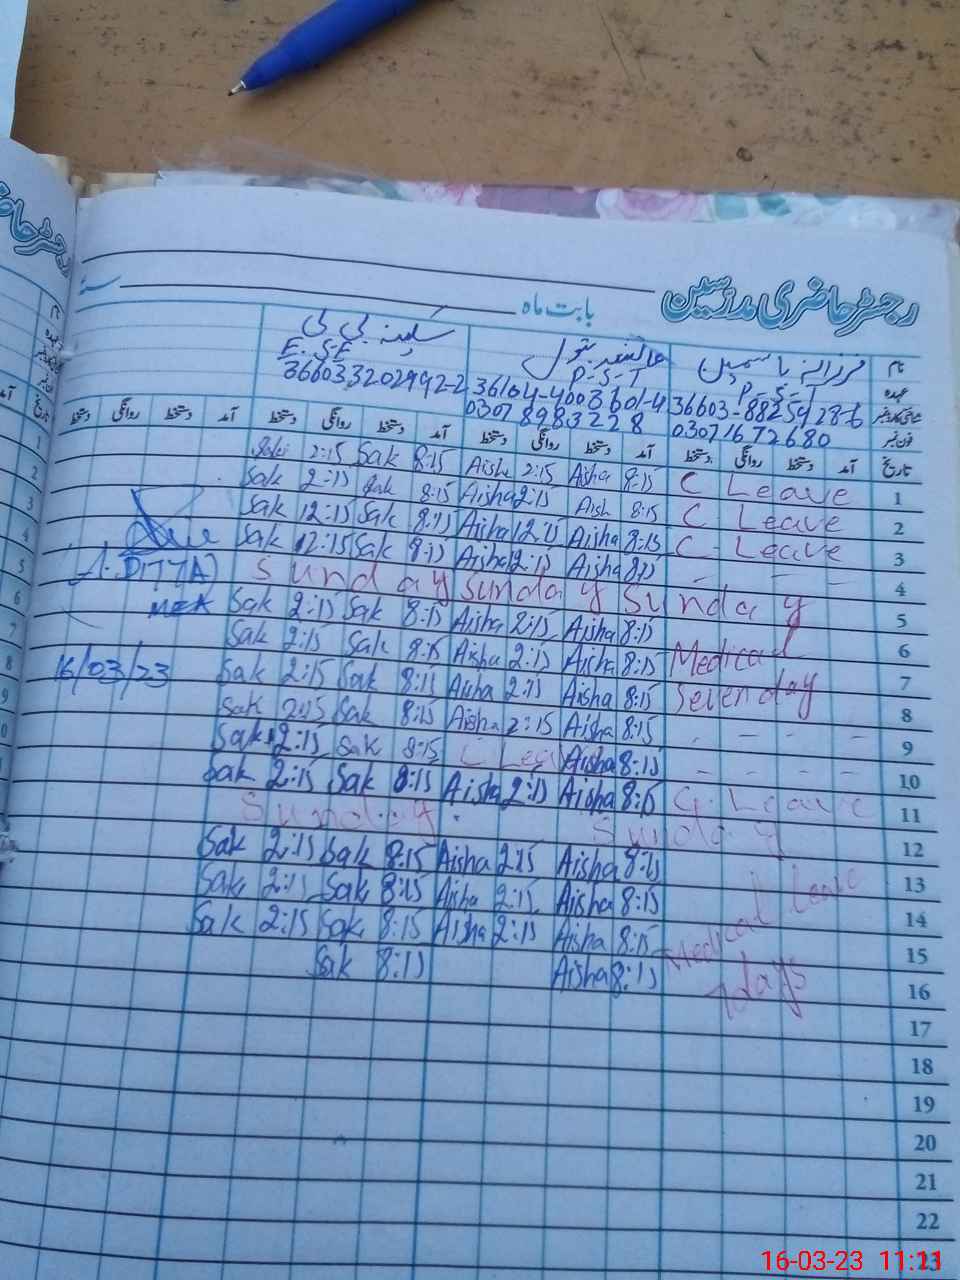 رجسٹر حاضری مدرسین
بابت ماہ
سنہ
نام فرزانہ یاسمین سکینہ بی بی
عہدہ P-S-T P-S-T E.S.E
شناختی کارڈ نمبر 36603-8825928-6 36104-4003601-4 366033202992-2
فون نمبر 03071672680 03078983228
تاریخ آمد دستخط روانگی دستخط آمد دستخط روانگی دستخط آمد دستخط روانگی دستخط آمد دستخط روانگی دستخط
1 C Leave 8:15 Aisha 2:15 Aishe 8:15 Sak 2:15
2 C Leave 8:15 Aish 2:15 Aisha 8:15 Sak 2:15 Sak
3 C- Leave 8:15 Aisha 12:15 Aisha 8:15 Sak 12:15 Sak
4 - - - - 8:15 Aisha 12:15 Aisha 8:15 Sak 12:15 Sak
5 Sunday Sunday Sunday
6 8:15 Aisha 2:15 Aisha 8:15 Sak 2:15 Sak
7 Medical 8:15 Aisha 2:15 Aisha 8:15 Sak 2:15 Sak
8 Seven day 8:15 Aisha 2:15 Aisha 8:15 Sak 2:15 Sak
9 - - - - 8:15 Aisha 2:15 Aisha 8:15 Sak 2:15 Sak
10 - - - - 8:15 Aisha C Lea 8:15 Sak 12:15 Sak
11 C. Leave 8:15 Aisha 2:15 Aisha 8:15 Sak 2:15 Sak
12 Sunday Sunday
13 8:15 Aisha 2:15 Aisha 8:15 Sak 2:15 Sak
14 8:15 Aisha 2:15 Aisha 8:15 Sak 2:15 Sak
15 Medical Leave 8:15 Aisha 2:15 Aisha 8:15 Sak 2:15 Sak
16 7days 8:15 Aisha 8:15 Sak
17
18
19
20
21
22
23
(A.DITTA)
MEA
16/03/23
رجسٹر حا
1
2
3
4
5
6
7
8
9
16-03-23 11:11